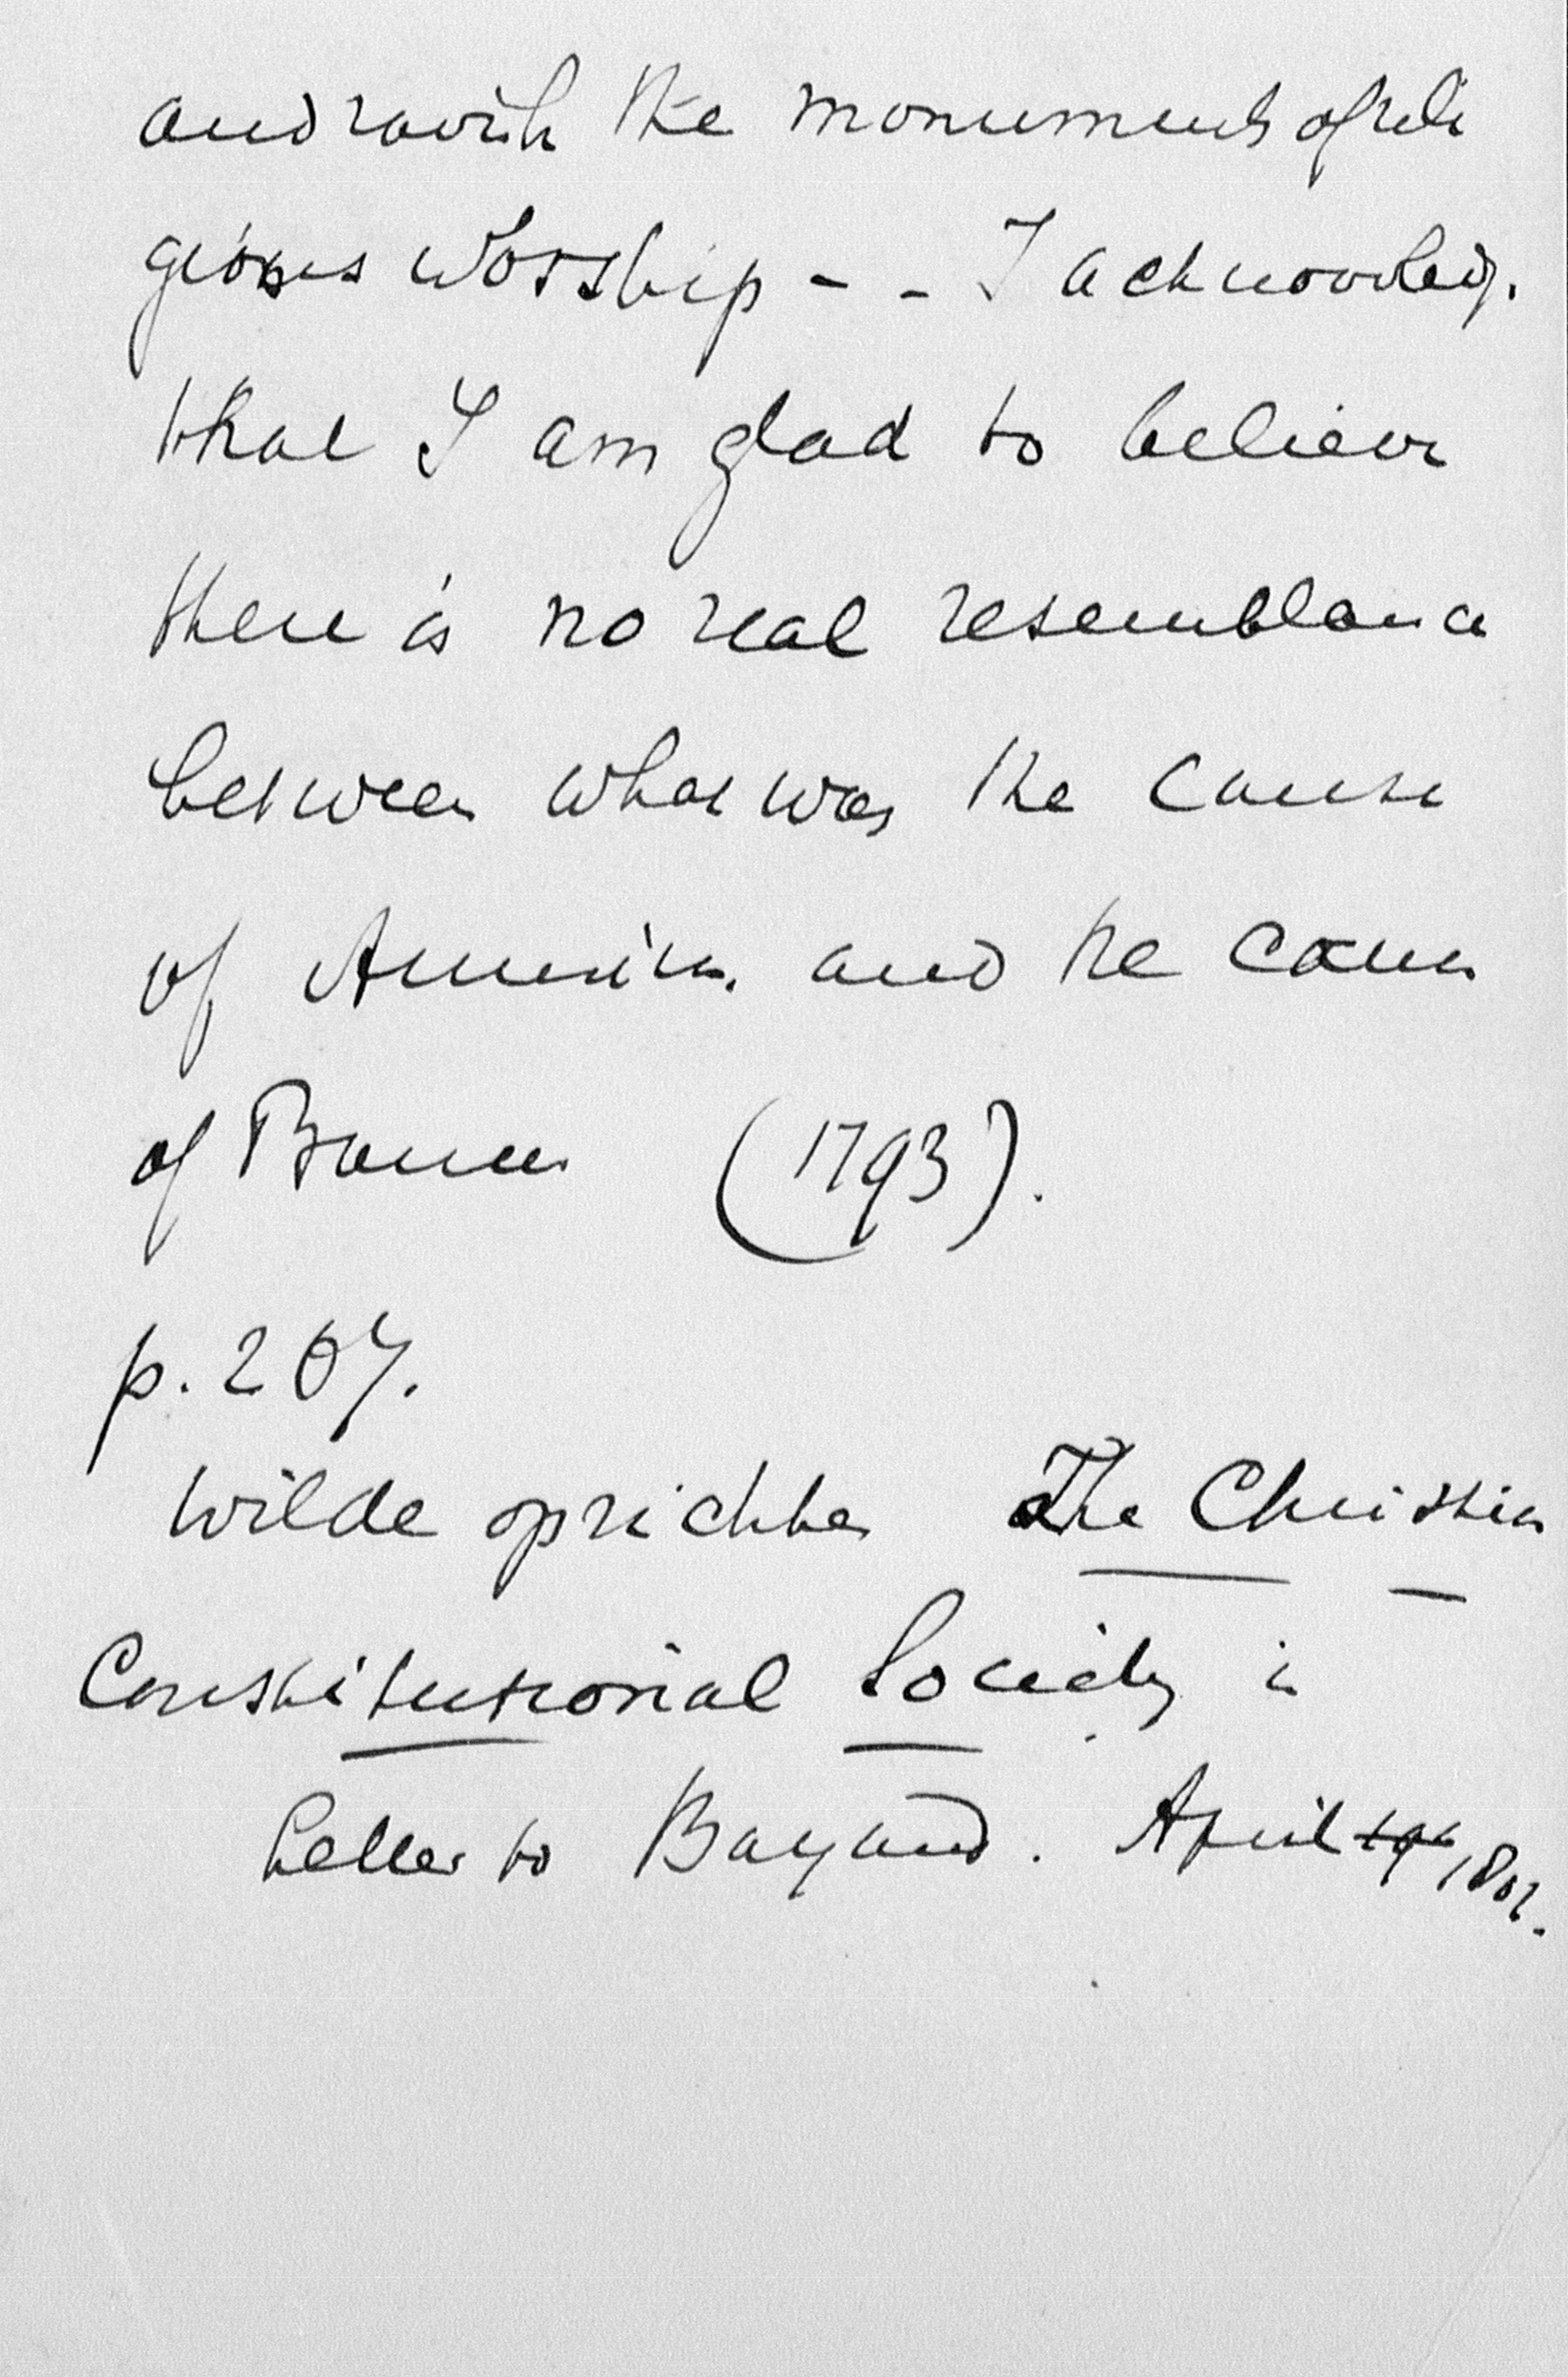 and ravish the monuments of reli
gious worship - - I acknowledg.
that I am glad to believe
there is no real resemblance
between what was the cause
of America and the cause
of France (1793).
p. 207.
Wilde oprichten The Christian
Constitutional Society in
Letter to Bayard. April 1802.